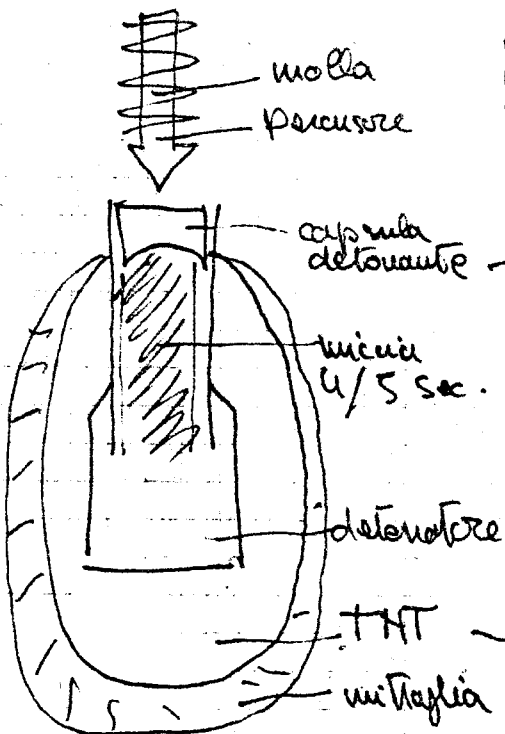 molla
percussore
capsula
detonante
miccia
4/5 sec.
detonatore
TNT
mitraglia